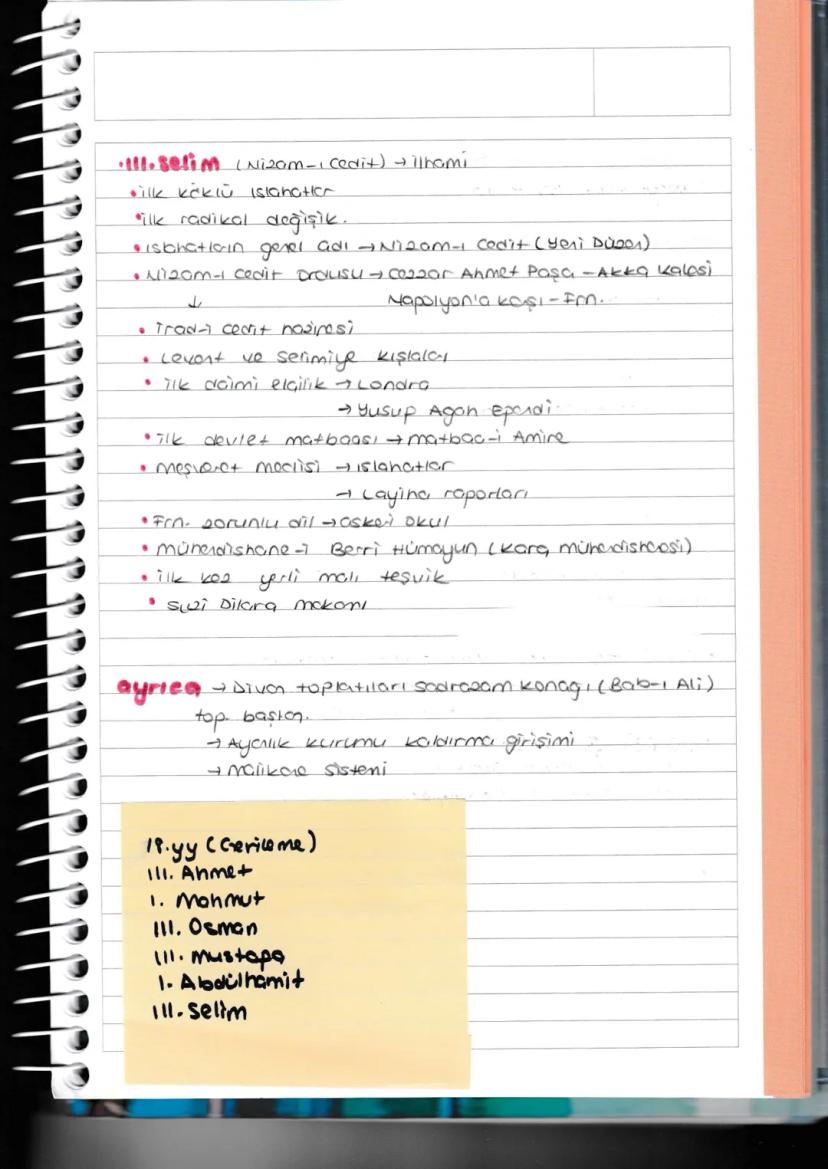 •III. Selim (Nizam-ı Cedit) → ilhami
• ilk köklü ıslahatlar
• ilk radikal değişik.
• ıslahatların genel adı → Nizam-ı Cedit (Yeni Düzen)
• Nizam-ı Cedit ordusu → Cezzar Ahmet Paşa - Akka Kalesi
↓ Napolyon'a karşı - Frn.
• İrad-ı cedit hazinesi
• Levent ve Selimiye kışlaları
• ilk daimi elçilik → Londra
→ Yusuf Agah Efendi
• ilk devlet matbaası → matbaa-i Amire
• meşveret meclisi → ıslahatlar
→ Layiha raporları
• Frn. zorunlu dil → askeri okul
• mühendishane-i Berri Hümayun (kara mühendishanesi)
• ilk kez yerli malı teşvik
• suzi Dilara makamı
ayrıca → Divan toplatıları sadrazam konağı (Bab-ı Ali)
top. başlan.
→ Ayanlık kurumu kaldırma girişimi
→ malikane sistemi
18.yy (Gerileme)
III. Ahmet
I. Mahmut
III. Osman
III. Mustafa
I. Abdülhamit
III. Selim